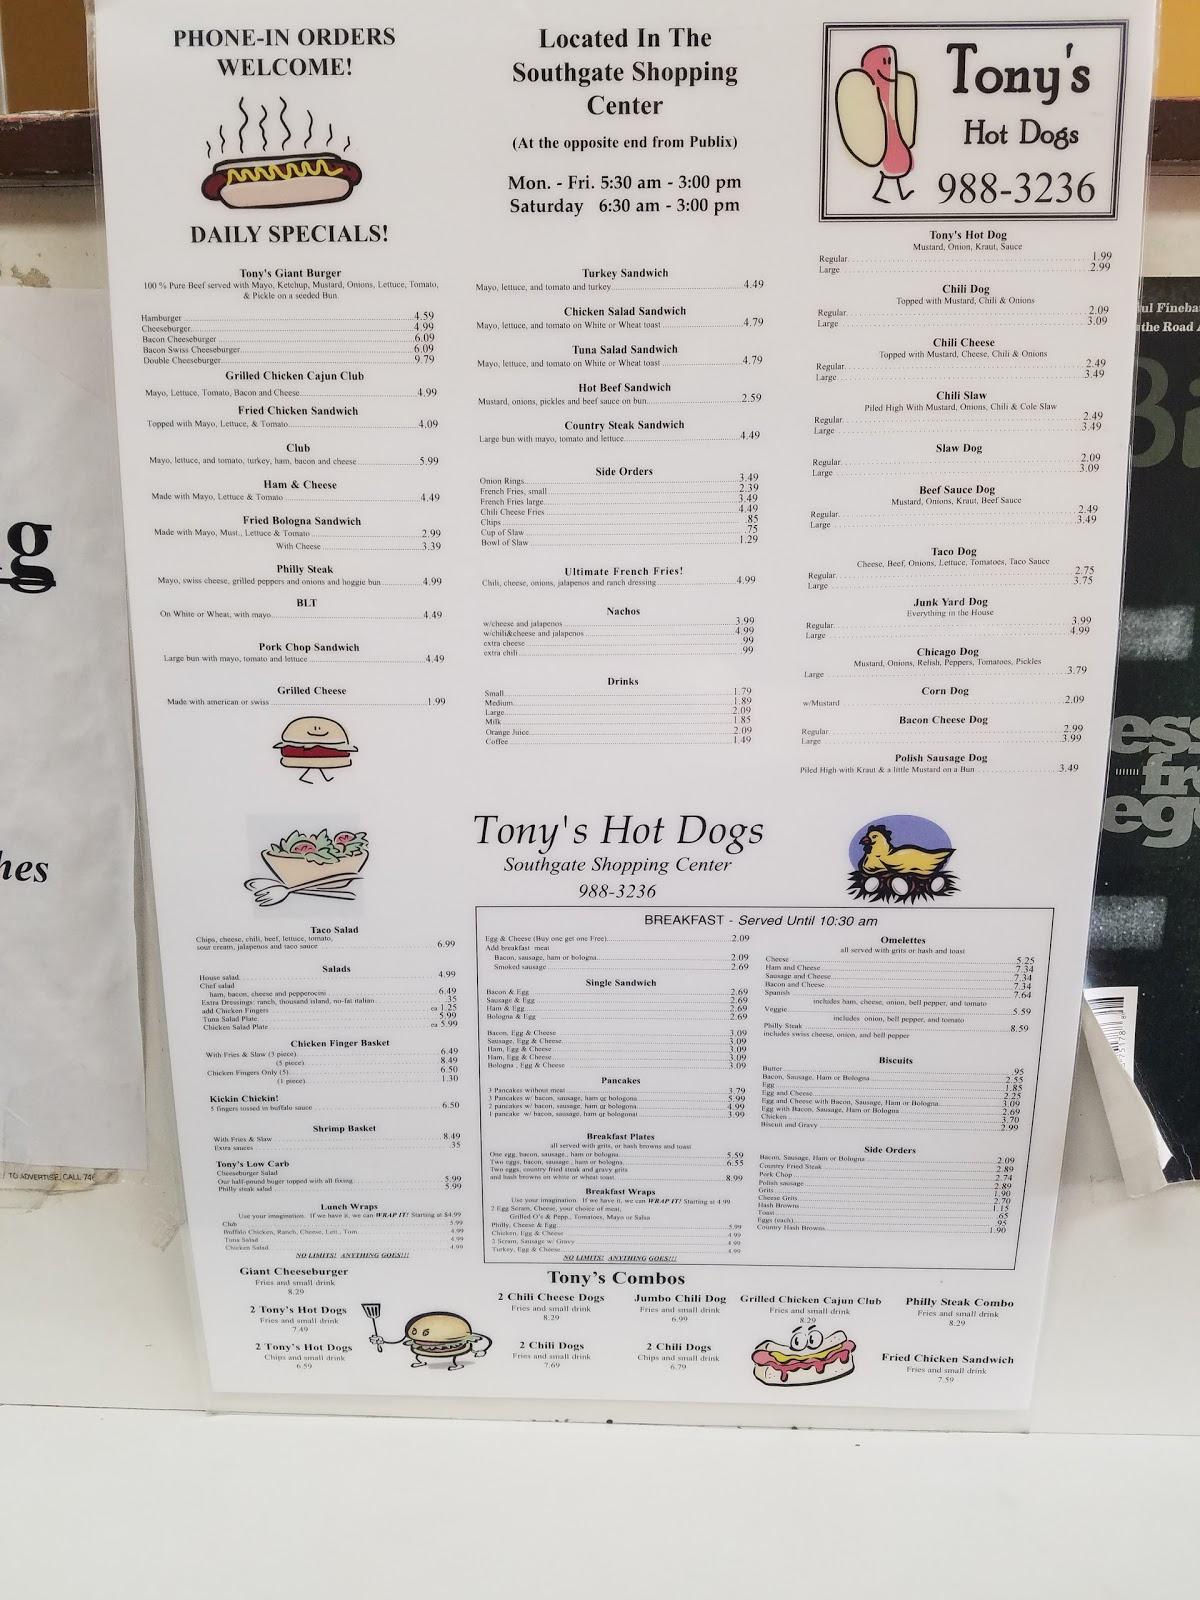 PHONE-IN ORDERS
WELCOME!
DAILY SPECIALS!
Located In The
Southgate Shopping
Center
(At the opposite end from Publix)
Mon. - Fri. 5:30 am - 3:00 pm
Saturday 6:30 am - 3:00 pm
Tony's
Hot Dogs
988-3236
Tony's Giant Burger
100 % Pure Beef served with Mayo, Ketchup, Mustard, Onions, Lettuce, Tomato,
& Pickle on a seeded Bun.
Hamburger 4.59
Cheeseburger 4.99
Bacon Cheeseburger 6.09
Bacon Swiss Cheeseburger 6.09
Double Cheeseburger 9.79
Grilled Chicken Cajun Club
Mayo, Lettuce, Tomato, Bacon and Cheese 4.99
Fried Chicken Sandwich
Topped with Mayo, Lettuce, & Tomato 4.09
Club
Mayo, lettuce, and tomato, turkey, ham, bacon and cheese 5.99
Ham & Cheese
Made with Mayo, Lettuce & Tomato 4.49
Fried Bologna Sandwich
Made with Mayo, Must., Lettuce & Tomato 2.99
With Cheese 3.39
Philly Steak
Mayo, swiss cheese, grilled peppers and onions and hoggie bun 4.99
BLT
On White or Wheat, with mayo 4.49
Pork Chop Sandwich
Large bun with mayo, tomato and lettuce 4.49
Grilled Cheese
Made with american or swiss 1.99
Turkey Sandwich
Mayo, lettuce, and tomato and turkey 4.49
Chicken Salad Sandwich
Mayo, lettuce, and tomato on White or Wheat toast 4.79
Tuna Salad Sandwich
Mayo, lettuce, and tomato on White or Wheat toast 4.79
Hot Beef Sandwich
Mustard, onions, pickles and beef sauce on bun 2.59
Country Steak Sandwich
Large bun with mayo, tomato and lettuce 4.49
Side Orders
Onion Rings 3.49
French Fries, small 2.39
French Fries large 3.49
Chili Cheese Fries 4.49
Chips .85
Cup of Slaw .75
Bowl of Slaw 1.29
Ultimate French Fries!
Chili, cheese, onions, jalapenos and ranch dressing 4.99
Nachos
w/cheese and jalapenos 3.99
w/chili&cheese and jalapenos 4.99
extra cheese .99
extra chili .99
Drinks
Small 1.79
Medium 1.89
Large 2.09
Milk 1.85
Orange Juice 2.09
Coffee 1.49
Tony's Hot Dog
Mustard, Onion, Kraut, Sauce
Regular 1.99
Large 2.99
Chili Dog
Topped with Mustard, Chili & Onions
Regular 2.09
Large 3.09
Chili Cheese
Topped with Mustard, Cheese, Chili & Onions
Regular 2.49
Large 3.49
Chili Slaw
Piled High With Mustard, Onions, Chili & Cole Slaw
Regular 2.49
Large 3.49
Slaw Dog
Regular 2.09
Large 3.09
Beef Sauce Dog
Mustard, Onions, Kraut, Beef Sauce
Regular 2.49
Large 3.49
Taco Dog
Cheese, Beef, Onions, Lettuce, Tomatoes, Taco Sauce
Regular 2.75
Large 3.75
Junk Yard Dog
Everything in the House
Regular 3.99
Large 4.99
Chicago Dog
Mustard, Onions, Relish, Peppers, Tomatoes, Pickles
Large 3.79
Corn Dog
w/Mustard 2.09
Bacon Cheese Dog
Regular 2.99
Large 3.99
Polish Sausage Dog
Piled High with Kraut & a little Mustard on a Bun 3.49
Tony's Hot Dogs
Southgate Shopping Center
988-3236
Taco Salad
Chips, cheese, chili, beef, lettuce, tomato,
sour cream, jalapenos and taco sauce 6.99
Salads
House salad 4.99
Chef salad
ham, bacon, cheese and pepperocini 6.49
Extra Dressings: ranch, thousand island, no-fat italian .35
add Chicken Fingers ea 1.25
Tuna Salad Plate 5.99
Chicken Salad Plate ea 5.99
Chicken Finger Basket
With Fries & Slaw (3 piece) 6.49
(5 piece) 8.49
Chicken Fingers Only (5) 6.50
(1 piece) 1.30
Kickin Chickin!
5 fingers tossed in buffalo sauce 6.50
Shrimp Basket
With Fries & Slaw 8.49
Extra sauces .35
Tony's Low Carb
Cheeseburger Salad
Our half-pound buger topped with all fixing 5.99
Philly steak salad 5.99
Lunch Wraps
Use your imagination. If we have it, we can WRAP IT! Starting at $4.99
Club 5.99
Buffalo Chicken, Ranch, Cheese, Lett., Tom. 4.99
Tuna Salad 4.99
Chicken Salad 4.99
NO LIMITS! ANYTHING GOES!!!
BREAKFAST - Served Until 10:30 am
Egg & Cheese (Buy one get one Free) 2.09
Add breakfast meat
Bacon, sausage, ham or bologna 2.09
Smoked sausage 2.69
Single Sandwich
Bacon & Egg 2.69
Sausage & Egg 2.69
Ham & Egg 2.69
Bologna & Egg 2.69
Bacon, Egg & Cheese 3.09
Sausage, Egg & Cheese 3.09
Ham, Egg & Cheese 3.09
Ham, Egg & Cheese 3.09
Bologna , Egg & Cheese 3.09
Pancakes
3 Pancakes without meat 3.79
3 Pancakes w/ bacon, sausage, ham or bologna 5.99
2 pancakes w/ bacon, sausage, ham or bologna 4.99
1 pancake w/ bacon, sausage, ham or bologna 3.99
Breakfast Plates
all served with grits, or hash browns and toast
One egg, bacon, sausage., ham or bologna 5.59
Two eggs, bacon, sausage., ham or bologna 6.55
Two eggs, country fried steak and gravy grits
and hash browns on white or wheat toast 8.99
Breakfast Wraps
Use your imagination. If we have it, we can WRAP IT! Starting at 4.99
2 Egg Scram, Cheese, your choice of meat,
Grilled O's & Pepp., Tomatoes, Mayo or Salsa
Philly, Cheese & Egg 5.99
Chicken, Egg & Cheese 4.99
2 Scram, Sausage w/ Gravy 4.99
Turkey, Egg & Cheese 4.99
NO LIMITS! ANYTHING GOES!!!
Omelettes
all served with grits or hash and toast
Cheese 5.25
Ham and Cheese 7.34
Sausage and Cheese 7.34
Bacon and Cheese 7.34
Spanish 7.64
includes ham, cheese, onion, bell pepper, and tomato
Veggie 5.59
includes onion, bell pepper, and tomato
Philly Steak 8.59
includes swiss cheese, onion, and bell pepper
Biscuits
Butter .95
Bacon, Sausage, Ham or Bologna 2.55
Egg 1.85
Egg and Cheese 2.25
Egg and Cheese with Bacon, Sausage, Ham or Bologna 3.09
Egg with Bacon, Sausage, Ham or Bologna 2.69
Chicken 3.70
Biscuit and Gravy 2.99
Side Orders
Bacon, Sausage, Ham or Bologna 2.09
Country Fried Steak 2.89
Pork Chop 2.74
Polish sausage 2.89
Grits 1.90
Cheese Grits 2.70
Hash Browns 1.15
Toast .65
Eggs (each) .95
Country Hash Browns 1.90
Tony's Combos
Giant Cheeseburger
Fries and small drink
8.29
2 Tony's Hot Dogs
Fries and small drink
7.49
2 Tony's Hot Dogs
Chips and small drink
6.59
2 Chili Cheese Dogs
Fries and small drink
8.29
2 Chili Dogs
Fries and small drink
7.69
Jumbo Chili Dog
Fries and small drink
6.99
2 Chili Dogs
Chips and small drink
6.79
Grilled Chicken Cajun Club
Fries and small drink
8.29
Philly Steak Combo
Fries and small drink
8.29
Fried Chicken Sandwich
Fries and small drink
7.59
TO ADVERTISE, CALL
the Road